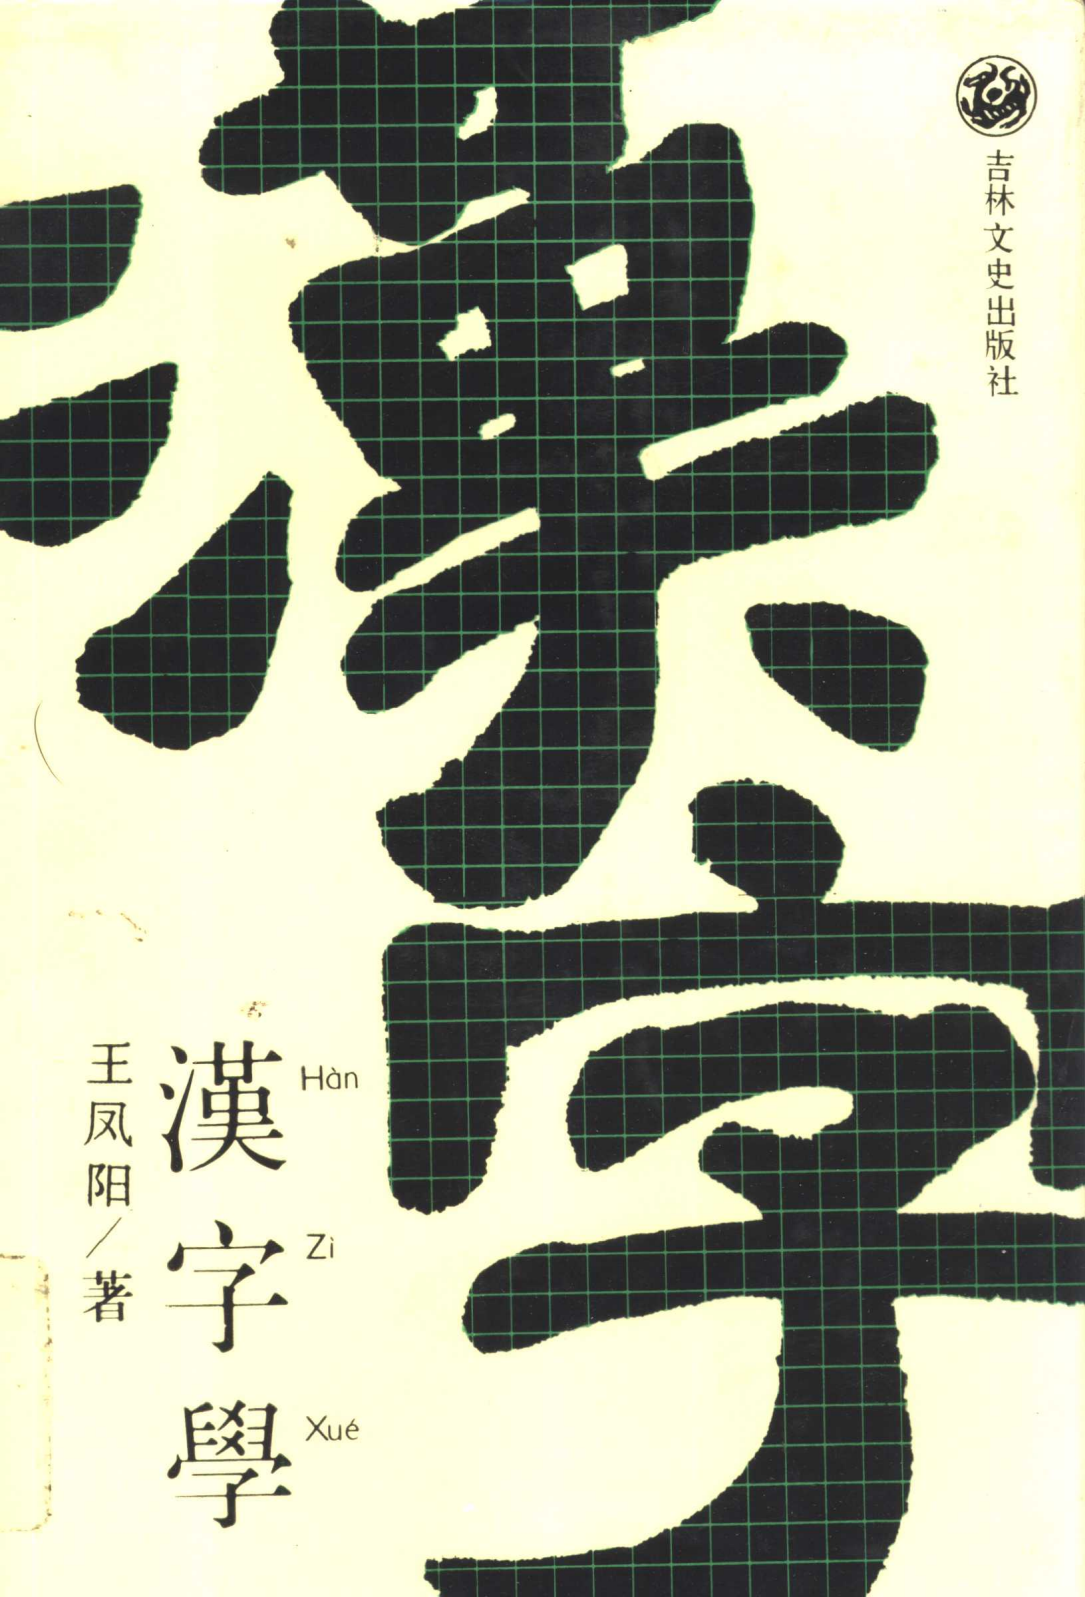 漢字
吉林文史出版社
漢字學
Hàn
Zì
Xué
王凤阳/著